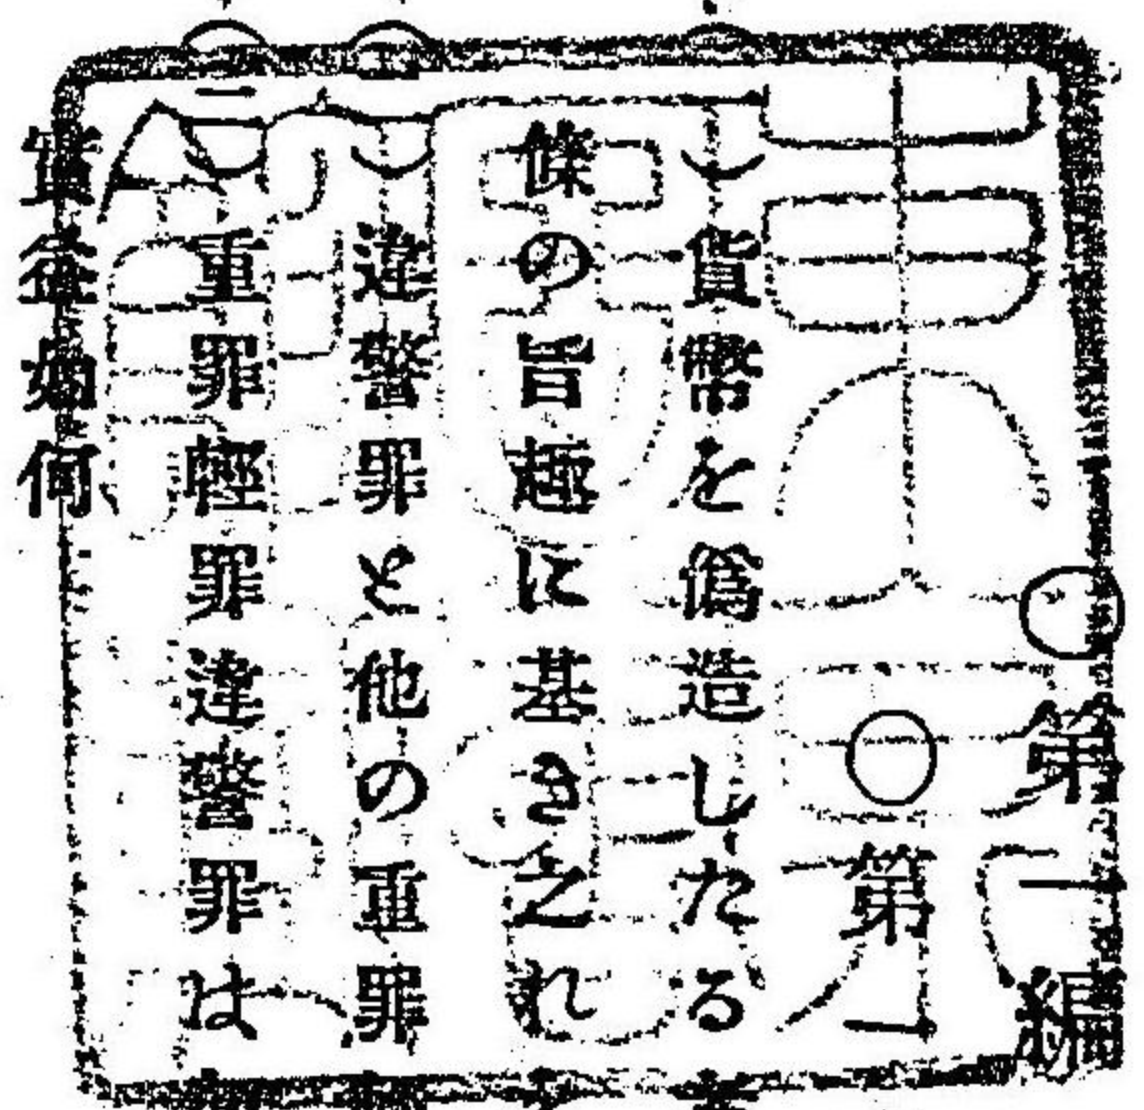 ○第一編
○第一
)貨幣を僞造したる
條の旨趣に基き之れ
)違警罪と他の重罪
二)重罪輕罪違警罪は
實益如何